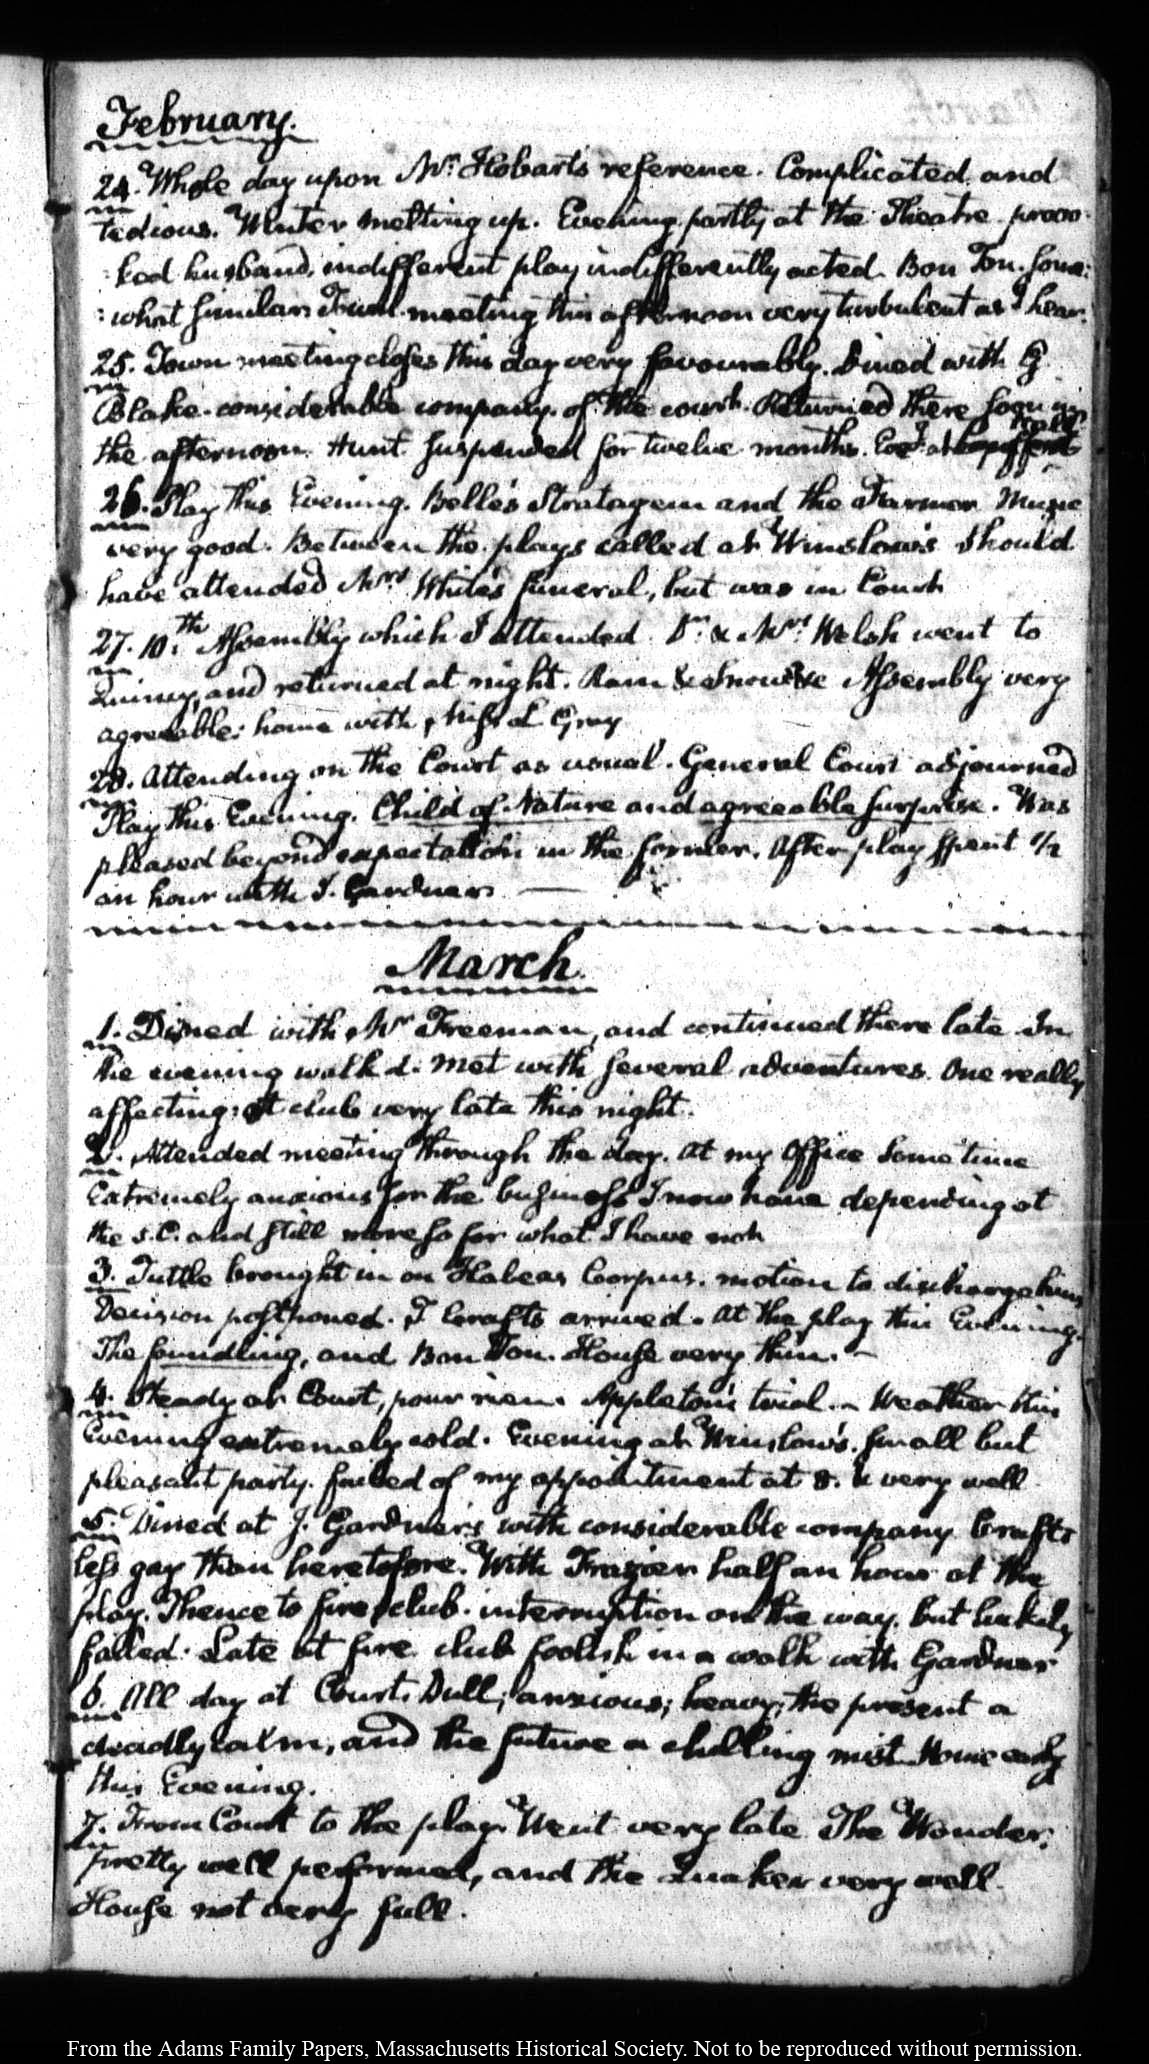 February.
24. Whole day upon Mr. Hobart's reference. Complicated and
tedious. Winter melting up. Evening partly at the Theatre. provo-
:ked husband, indifferent play indifferently acted. Bon Ton. some:
:what similar. Town meeting this afternoon very turbulent as I hear.
25. Town meeting closes this day very favourably. Dined with G
Blake. considerable company. of the court. Returned there soon in
the afternoon. Hunt suspended for twelve months. Eveg. at
26. Play this Evening. Belle's Stratagem and the Farmer. Music
very good. Between the plays called at Winslow's. Should
have attended Mrs. White's funeral, but was in Court
27. 10.th Assembly which I attended. Dr. & Mrs. Welsh went to
Quincy, and returned at night. Rain & Snow. Assembly very
agreeable: home with Miss L Gray
28. Attending on the Court as usual. General Court adjourned
Play this Evening. Child of Nature and agreeable surprise. Was
pleased beyond expectation in the former. After play spent 1/2
an hour with J. Gardner.
March.
1. Dined with Mr. Freeman, and continued there late. In
the evening walk d. met with several adventures. One really
affecting: at club very late this night.
2. Attended meeting through the day. At my Office some time
Extremely anxious for the business I now have depending at
the S.C. and still more so for what I have not
3. Tuttle brought in on Habeas Corpus. motion to discharge him
Decision postponed. T Crafts arrived. At the play this Evening.
The foundling, and Bon Ton. House very thin.
4. Steady at Court, pour rien. Appleton's trial. Weather this
Evening extremely cold. Evening at Winslow's. small but
pleasant party. failed of my appointment at 8. & very well
5. Dined at J. Gardner's with considerable company Crafts
less gay than heretofore. With Frazier half an hour at the
play. Thence to fire club. interruption on the way. but luckily
failed. Late at fire club foolish in a walk with Gardner
6. All day at Court. Dull; anxious; heavy; the present a
deadly calm, and the future a chilling mist. Home early
this Evening.
7. From Court to the play. Went very late. The Wonder.
pretty well performed, and the Quaker very well.
House not very full.
From the Adams Family Papers, Massachusetts Historical Society. Not to be reproduced without permission.